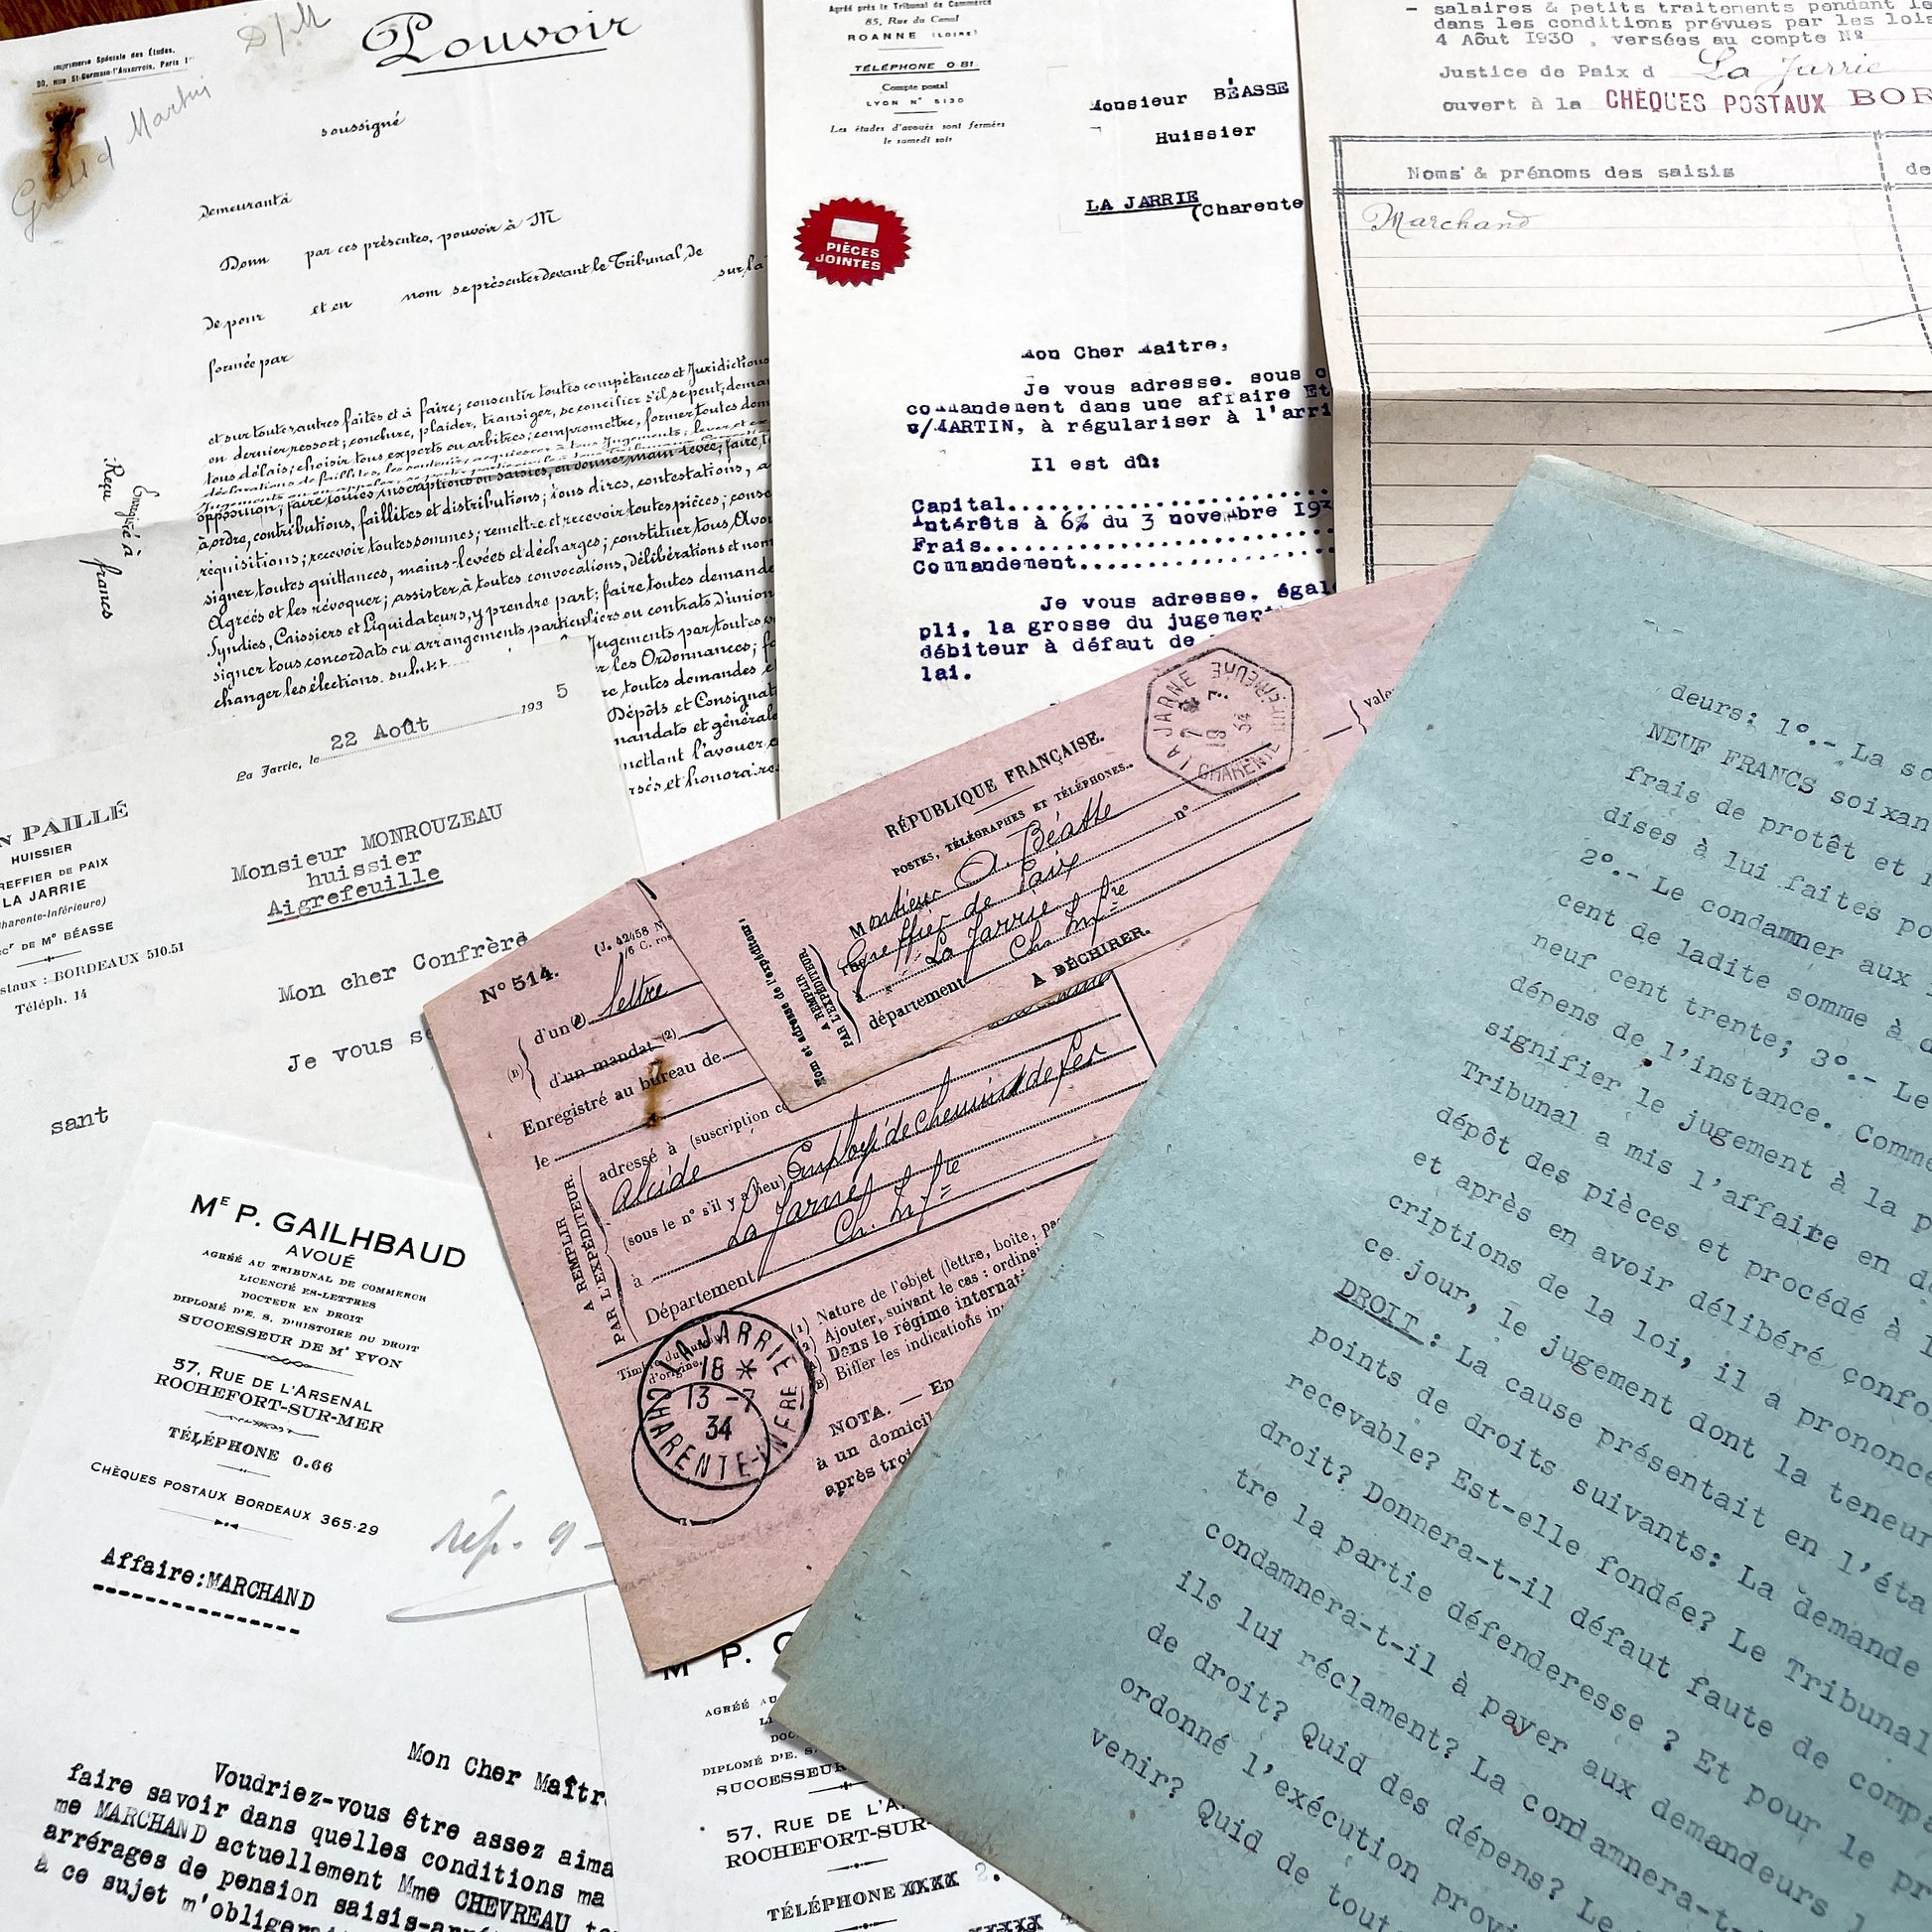 Imprimerie Spéciale des Études,
D/M
Pouvoir
soussigné
Demeurant à
Donn par ces présentes, pouvoir à M
De pour et en nom se présenter devant le Tribunal de
sur la
formée par
et sur toutes autres faites et à faire; consentir toutes compétences et Juridictions
en dernier ressort; conclure, plaider, transiger, se concilier s'il se peut, deman
tous délais; choisir tous experts ou arbitres; compromettre, former toutes dem
opposition; faire toutes inscriptions ou saisies, en donner main levée; faire, t
à ordre, contributions, faillites et distributions; tous dires, contestations, a
réquisitions; recevoir toutes sommes; remettre et recevoir toutes pièces; conse
signer toutes quittances, mains-levées et décharges; constituer tous Avou
Agréés et les révoquer; assister à toutes convocations, délibérations et nom
Syndics, Caissiers et Liquidateurs, y prendre part; faire toutes demande
signer tous concordats ou arrangements particuliers ou contrats d'union
changer les élections.
Jugements par toutes
r les Ordonnances; f
re toutes demandes e
Dépôts et Consignat
mandats et générale
mettant l'avouer
rsés et honoraire
Enregistré à
Reçu francs
Agréé près le Tribunal de Commerce
85, Rue du Canal
ROANNE (LOIRE)
TÉLÉPHONE 0 81
Compte postal
LYON N° 5130
Les études d'avoués sont fermées
le samedi soir
PIÈCES
JOINTES
Monsieur BÉASSE
Huissier
LA JARRIE
(Charente
Mon Cher Maitre,
Je vous adresse. sous c
commandement dans une affaire Et
c/MARTIN, à régulariser à l'arri
Il est dû:
Capital..........................
Intérêts à 6% du 3 novembre 193
Frais............................
Commandement.....................
Je vous adresse. égal
pli. la grosse du jugement
débiteur à défaut de
lai.
- salaires & petits traitements pendant le
dans les conditions prévues par les lois
4 Aôut I930 , versées au compte Nº
Justice de Paix d La Jarrie
ouvert à la CHÈQUES POSTAUX BOR
Noms & prénoms des saisis
de
Marchand
La Jarrie, le 22 Août 193 5
N PAILLÉ
HUISSIER
REFFIER DE PAIX
LA JARRIE
harente-Inférieure)
DE Me BÉASSE
staux : BORDEAUX 510.51
Téléph. 14
Monsieur MONROUZEAU
huissier
Aigrefeuille
Mon cher Confrère
Je vous se
sant
RÉPUBLIQUE FRANÇAISE.
POSTES, TÉLÉGRAPHES ET TÉLÉPHONES.
LA JARNE
7
19 7.
34
CHARENTE INFERIEURE
vale
Monsieur A. Béasse
Greffier de Paix
n°
La Jarrie
département Cha. Infre
A DÉCHIRER.
Nom et adresse de l'expéditeur
A REMPLIR
PAR L'EXPÉDITEUR.
N° 514.
d'un lettre
(B)
d'un mandat (2)
Enregistré au bureau de
le
adressé à (suscription co
Alcide
(sous le n° s'il y a lieu) Employé de chemins de fer
à La Jarne
Département Ch. Infre
A REMPLIR
PAR L'EXPÉDITEUR.
Timbre du bureau
d'origine.
LA JARRIE
18 *
13 -7
34
CHARENTE-INFRE
(1) Nature de l'objet (lettre, boîte, pa
(2) Ajouter, suivant le cas : ordinai
Dans le régime internati
(B) Biffer les indications inu
NOTA. — En
à un domicil
après troi
ME P. GAILHBAUD
AVOUÉ
AGRÉÉ AU TRIBUNAL DE COMMERCE
LICENCIÉ ES-LETTRES
DOCTEUR EN DROIT
DIPLOMÉ D'E. S. D'HISTOIRE DU DROIT
SUCCESSEUR DE Me YVON
57, RUE DE L'ARSENAL
ROCHEFORT-SUR-MER
TÉLÉPHONE 0.66
CHÈQUES POSTAUX BORDEAUX 365-29
Affaire:MARCHAND
rép. 9 -
Mon Cher Maîtr
Voudriez-vous être assez aima
faire savoir dans quelles conditions ma
me MARCHAND actuellement Mme CHEVREAU to
arrérages de pension saisis-arrê
à ce sujet m'obliger
M P. G
AGRÉÉ AU
DIPLOMÉ D'E. S.
SUCCESSEUR
57, RUE DE L'A
ROCHEFORT-SUR-
TÉLÉPHONE XXXX
deurs: 1º.- La so
NEUF FRANCS soixan
frais de protêt et r
dises à lui faites po
2º.- Le condamner aux
cent de ladite somme à d
neuf cent trente; 3º.- Le
dépens de l'instance. Comme
signifier le jugement à la p
Tribunal a mis l'affaire en d
dépôt des pièces et procédé à l
et après en avoir délibéré confo
criptions de la loi, il a prononcé
ce jour, le jugement dont la teneur
DROIT : La cause présentait en l'éta
points de droits suivants: La demande
recevable? Est-elle fondée? Le Tribunal
droit? Donnera-t-il défaut faute de compa
tre la partie défenderesse ? Et pour le pr
condamnera-t-il à payer aux demandeurs l
ils lui réclament? La condamnera-t-
de droit? Quid des dépens? Le
ordonné l'exécution provi
venir? Quid de tout